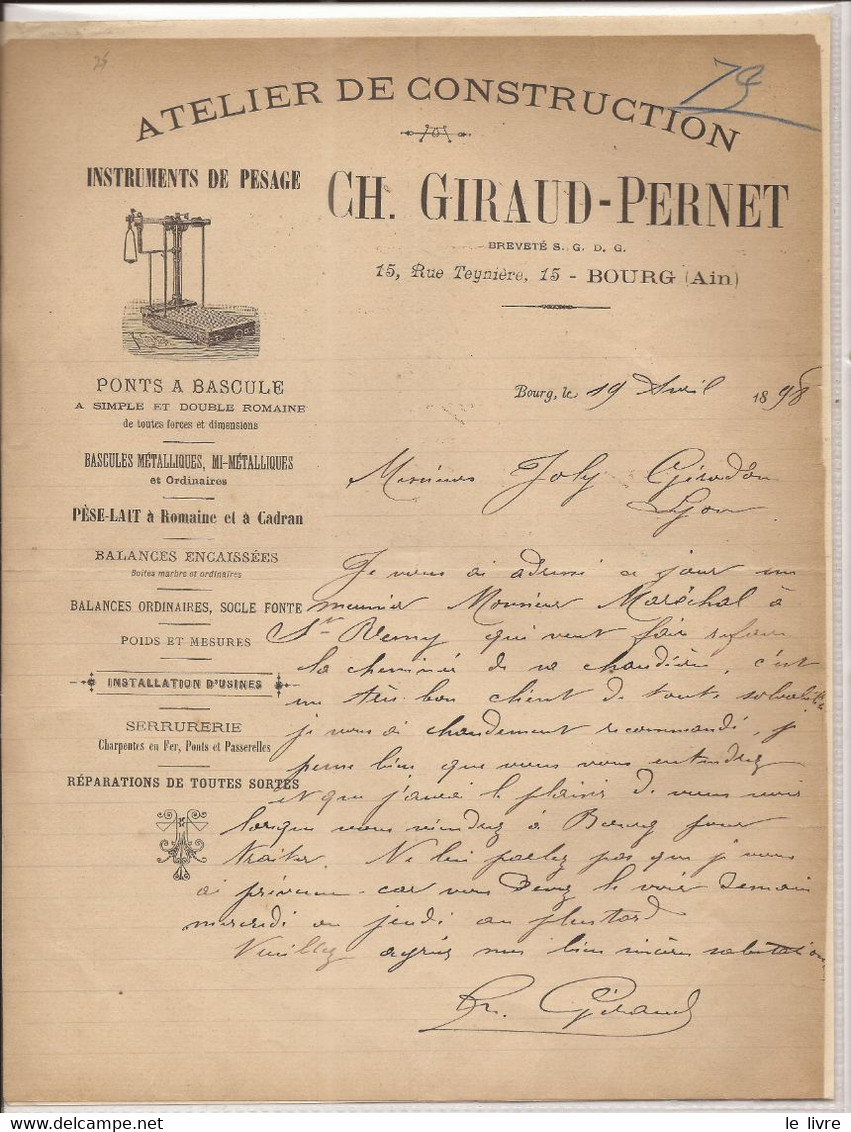 25
79
ATELIER DE CONSTRUCTION
INSTRUMENTS DE PESAGE
CH. GIRAUD-PERNET
BREVETÉ S. G. D. G.
15, Rue Teynière, 15 - BOURG (Ain)
PONTS A BASCULE
A SIMPLE ET DOUBLE ROMAINE
de toutes forces et dimensions
BASCULES MÉTALLIQUES, MI-MÉTALLIQUES
et Ordinaires
PÈSE-LAIT à Romaine et à Cadran
BALANCES ENCAISSÉES
Boîtes marbre et ordinaires
BALANCES ORDINAIRES, SOCLE FONTE
POIDS ET MESURES
INSTALLATION D'USINES
SERRURERIE
Charpentes en Fer, Ponts et Passerelles
RÉPARATIONS DE TOUTES SORTES
Bourg, le 19 Avril 1898
Messieurs Joly Girodon
Lyon
Je vous ai adressé ce jour un
meunier Monsieur Maréchal à
St Remy qui veut faire refaire
la cheminée de sa chaudière, c'est
un très bon client de toute solvabilité
je vous ai chaudement recommandé, je
pense bien que vous vous entendrez
et que j'aurai le plaisir de vous voir
lorsque vous viendrez à Bourg pour
traiter. Ne lui parlez pas que je vous
ai prévenu car vous devez le voir demain
mercredi ou jeudi au plustard
Veuillez agréer mes bien sincères salutations
Ch. Giraud
le livre